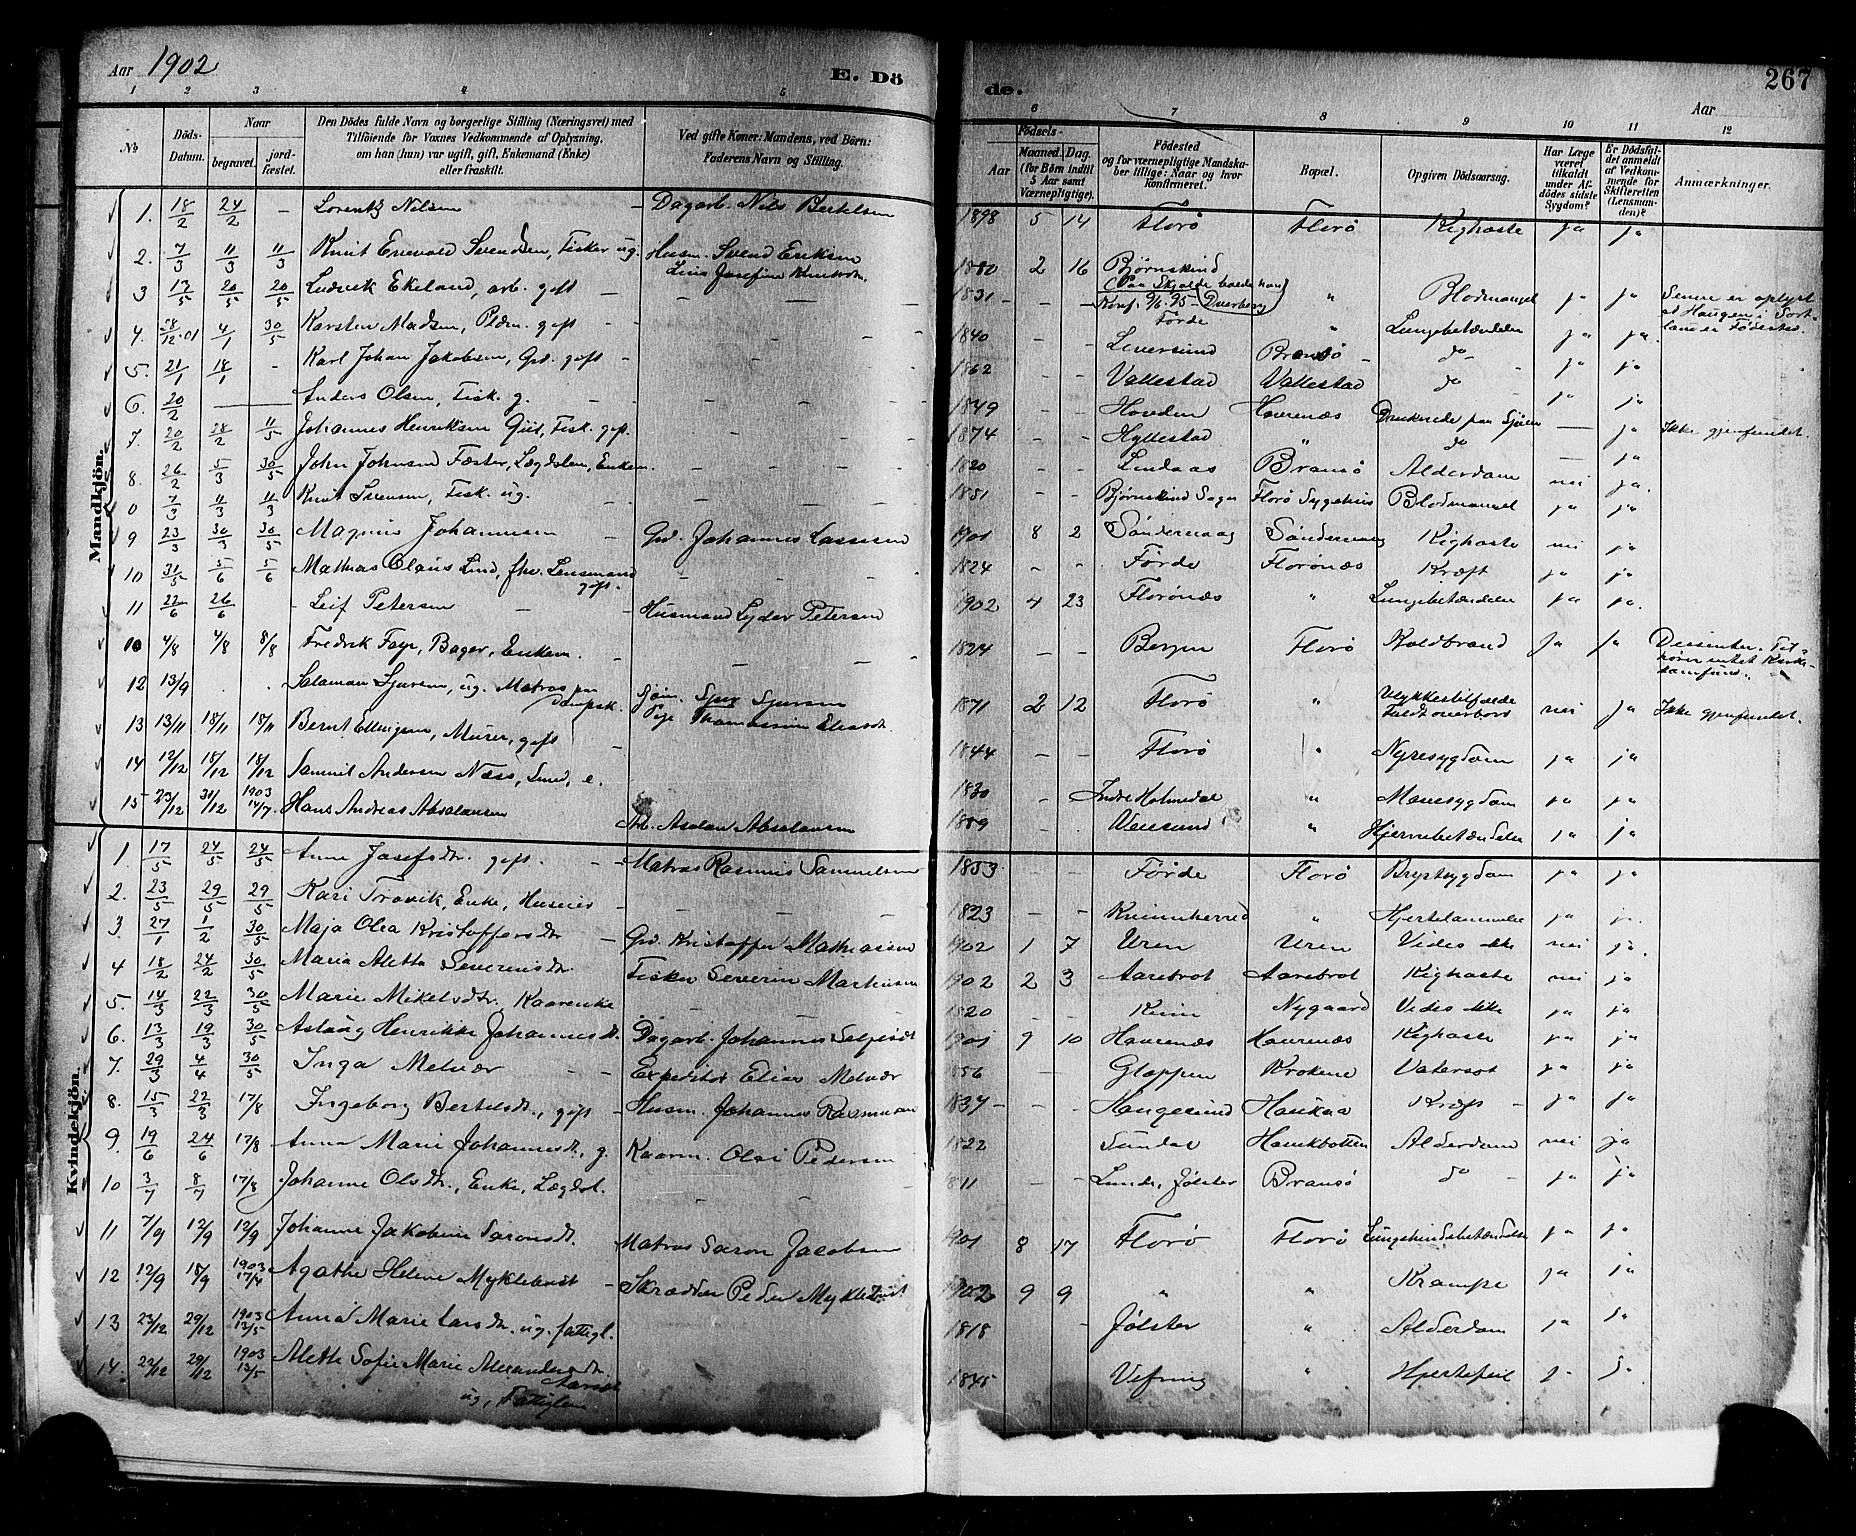 Aar 1902
E. Dö
de.
267
Aar
1 2 3 4 5 6 7 8 9 10 11 12
No
Döds-Datum.
Naar
begravet.
jord-fæstet.
Den Dödes fulde Navn og borgerlige Stilling (Næringsvei) med
Tilföiende for Voxnes Vedkommende af Oplysning,
om han (hun) var ugift, gift, Enkemand (Enke)
eller fraskilt.
Ved gifte Koner: Mandens, ved Börn:
Faderens Navn og Stilling.
Födsels-
Aar
Maaned. Dag.
(for Börn indtil
5 Aar samt
Værnepligtige).
Födested
og for værnepligtige Mandska-
ber tillige: Naar og hvor
Konfirmeret.
Bopæl.
Opgiven Dödsaarsag.
Har Læge
været
tilkaldt
under Af-
dödes sidste
Sygdom?
Er Dödsfal-
det anmeldt
af Vedkom-
mende for
Skifteretten
(Lensman-
den)?
Anmærkninger.
Mandkjön.
1. 18/2 24/2 - Lorentz Nilsen - Dagarb. Nils Bertelsen 1898 5 14 Florö Florö Kighoste ja ja
2. 7/3 11/3 11/3 Knut Enevald Svendsen, Fisker ug. Husm. Svend Eriksen 1880 2 16 Björnskind
Lina Josefine Knutsdtr. (Paa Skjolde boede han)
3 13/5 20/5 20/5 Ludvik Ekeland, arb. gift - 1831 - - Konf. 9/6 95 - Dverberg " Blodmangel ja ja Senere er oplyst
at Haugen i Sort-
land er Födested.
4. 28/12-01 4/1 30/5 Karsten Madsen, gift - - 1840 - - Förde " Lungebetændelse ja ja.
5. 21/1 18/1 - Karl Johan Jakobsen, Gv. gift - - 1862 - - Leversund Brandsö do ja ja
6. 20/2 — — Anders Olsen, Fisk. g. - 1849 - - Vallestad Vallestad do ja ja
7. 20/2 28/2 11/5 Johannes Henriksen Fisk. gift. - 1874 - - Hovden Havrenæs Druknede paa Sjöen — ja Ikke gjenfundet.
8. 26/2 5/3 30/5 John Johnsen Lægdslem, Enkem. - 1820 - - Hyllestad " do — ja
0 7/3 11/3 11/3 Knut Svensen, Fisk. ug. - 1881 - - Lindaas Bransö Alderdom nei ja.
Björnskind Sogn Florö Sygehus Blodmangel ja ja
9 23/3 30/3 30/5 Magnus Johannesen - Gv. Johannes Lassesen 1901 8 2 Söndervaag Söndervaag Kighoste nei ja
10 31/5 5/6 5/6 Mathias Claus Lind, fhv. Lensmand gift. - 1824 - - Förde Florönæs Kræft ja ja
11 22/6 26/6 - Leif Petersen - Husmand Lyder Petersen 1902 4 23 Florönæs " Lungebetændelse ja ja.
10 4/8 4/8 8/8 Fredrik Faye, Bager, Enkem. - 1824 - - Bergen Florö Koldbrand ja ja Dissenter. Til-
hörer intet Kirke-
samfund.
12 13/9 . . Salamon Sjursen, ug. Matros paa Dampsk. Sjur Sjursen 1871 2 12 Florö " Ulykkestilfælde nei ja Ikke gjenfundet.
Pige Thomassine Eliasdt. Faldt overbord
13 13/11 18/11 18/11 Bernt Ellingsen, Murer, gift 1844 - - Florö " Nyresygdom ja ja
14 12/12 18/12 18/12 Samuel Andersen Næss, Smed, e. 1830 - Indre Holmedal " Mavesygdom ja ja
15 23/12 31/12 1903 14/7. Hans Andreas Absalonsen Arb. Aslan Absalonsen 1889 Veisund " Hjernebetændelse ja ja
Kvindekjön.
1. 17/5 24/5 24/5 Anne Josefsdtr. gift. - - Matros Rasmus Samuelsen 1853 - - Förde Florö Brystsygdom ja ja
2. 23/5 29/5 29/5 Kari Travik, Enke, - 1823 - - Kvinnherred " Hjertelammelse ja ja.
3. 27/1 1/2 30/5 Maja Olea Kristoffersdtr - Gv. Kristoffer Mathiassen 1902 1 7 Uren Uren Vides ikke nei ja
4 18/2 24/2 30/5 Maria Aletta Severinsdtr. Fisker Severin Markusen 1902 2 3 Aarebrot Aarebrot Kighoste nei ja
5. 14/3 22/3 30/5 Marie Mikelsdtr. Kaarenke - 1820 Kinn Nygaard Vides ikke ja ja
6. 13/3 19/3 30/5 Aslaug Henrikke Johannesdt. Dagarb. Johannes 1901 9 10 Havrenæs Havrenæs Kighoste ja ja
7. 29/3 4/4 30/5 Inga Melvær - - Expeditör Elias Melvær 1856 Gloppen Krokene Vatersot ja ja
8. 15/3 22/3 17/8 Ingeborg Bertelsdt., gift - Husm. Johannes Rasmussen 1837 - - Haugesund Haukaa Kræft - ja ja
9. 19/6 24/6 17/8 Anna Marie Johannesdt. g. Kaarm. Ole Pedersen 1822 - - Sundal Haukbotten Alderdom nei ja
10 3/7 8/7 17/8 Johanne Olsdtr., Enke, Lægdsl. - 1811 - - Lunde, Jölster Bransö do - ja ja
11 7/9 12/9 12/9 Johanne Jakobine Saronsdt. Matros Saron Jacobsen 1901 8 17 Florö Florö Lungehindebetændelse ja ja
12 12/9 18/9 1903 17/4 Agathe Helene Myklebust - Skrædder Peder Myklebust 1902 9 9 " " Krampe ja ja
13 23/12 29/12 1903 13/5 Anna Marie Larsdtr. ug. fattigl. 1818 - Jölster " Alderdom ja ja
14. 22/12 29/12 1903 13/5 Alette Sofie Marie Alexandersdtr. 1845 Vefring " Hjertefeil j. j.
ug, Fattiglem